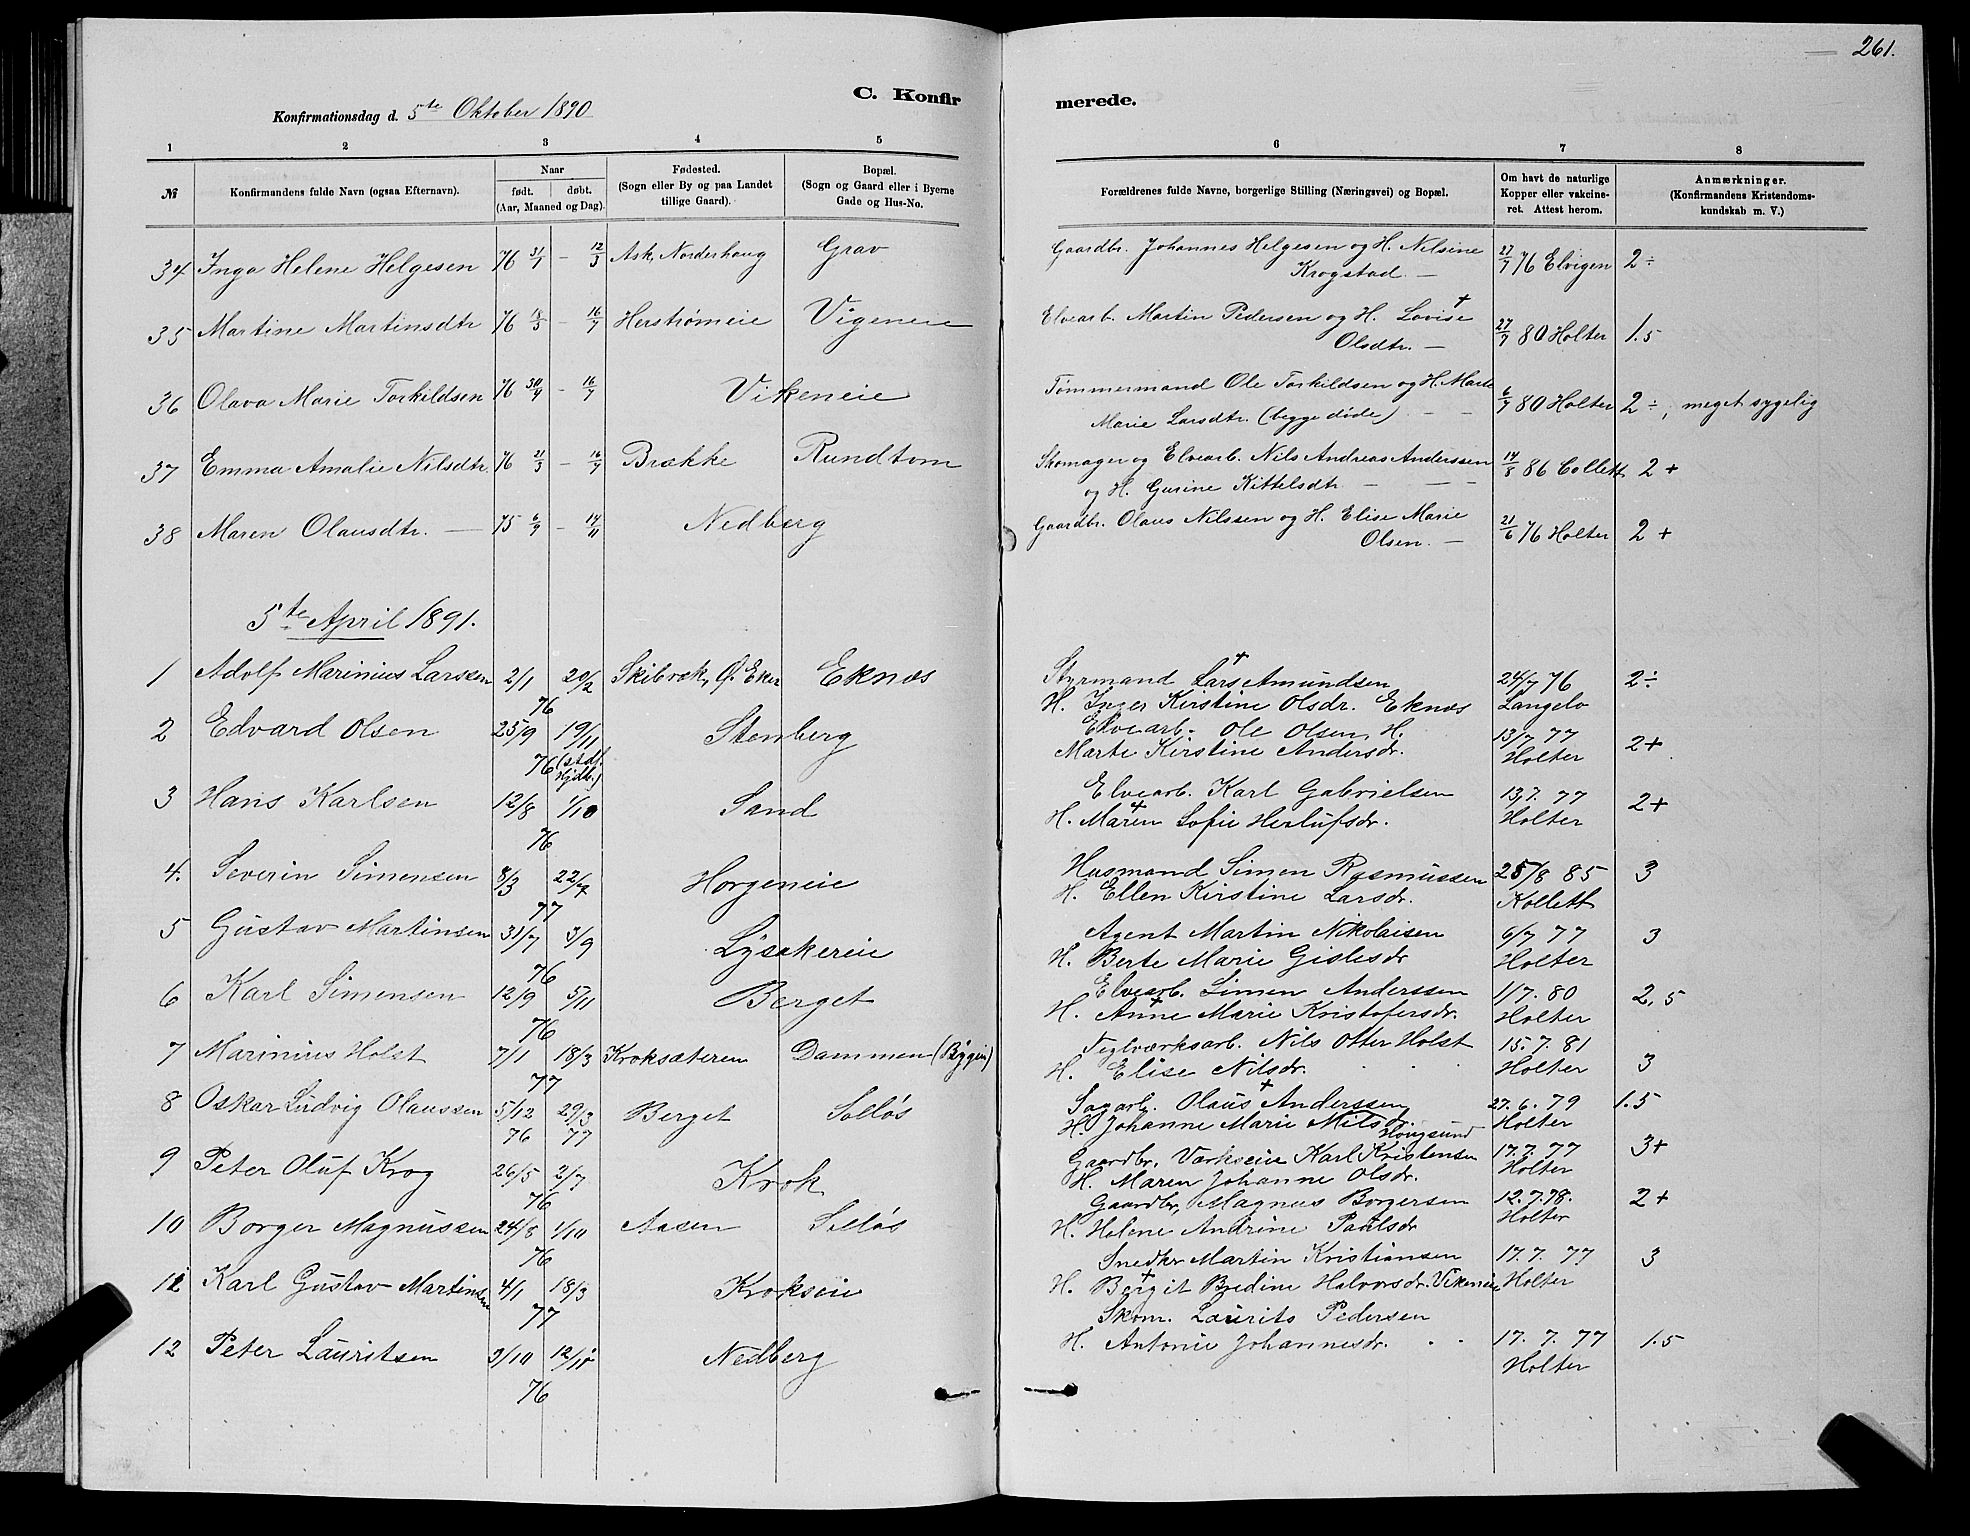 261.
Konfirmationsdag d. 5te Oktober 1890
C. Konfirmerede.
1 2 3 4 5 6 7 8
№
Konfirmandens fulde Navn (ogsaa Efternavn).
Naar
født. døbt.
(Aar, Maaned og Dag).
Fødested.
(Sogn eller By og paa Landet
tillige Gaard).
Bopæl.
(Sogn og Gaard eller i Byerne
Gade og Hus-No.
Forældrenes fulde Navne, borgerlige Stilling (Næringsvei) og Bopæl.
Om havt de naturlige
Kopper eller vakcine-
ret. Attest herom.
Anmærkninger.
(Konfirmandens Kristendoms-
kundskab m. V.)
34 Inga Helene Helgesen 76 31/1 – 12/3 Ask, Norderhoug Grav Gaardbr. Johannes Helgesen og H. Nilsine 27/7 76 Elvigen 2 ÷
Krogstad. —
35 Martine Martinsdtr 76 18/3 – 16/7 Herstrømeie Vigeneie Elvearb. Martin Pedersen og H. Lovise + 27/7 80 Holter 1.5
Olsdtr. —
36 Olava Marie Torkildsen 76 30/4 – 16/7 Vikeneie Tømmermand Ole Torkildsen og H. Marte 6/7 80 Holter 2 ÷, meget sygelig
Marie Larsdtr. (begge døde) — —
37 Emma Amalie Nilsdtr. 76 21/3 – 16/7 Brække Rundtom Skomager og Elvearb. Nils Andreas Anderssen 14/8 86 Collett 2 +
og H. Gurine Kittelsdtr — — —
38 Maren Olausdtr. — 75 6/9 – 14/11 Nedberg Gaardbr. Olaus Nilssen og H. Elise Marie 21/6 76 Holter 2 +
Olsen. —
5te April 1891.
1 Adolf Marinius Larssen 2/1 20/2 76 Skibvok, Ø. Eker Eknæs Styrmand Lars + Amundsen 24/7 76 2 ÷
H. Inger Kirstine Olsdr. Eknæs Langelo
2 Edvard Olsen 25/9 19/11 76 (stdf. Hjdb.) Stenberg Elvearb. Ole Olsen, H. 13/7 77 2+
Marte Kirstine Andersdr. Holter
3 Hans Karlsen 12/8 1/10 76 Sand Elvearb. Karl Gabrielsen 13,7. 77 2+
H. Maren + Sofie Herlufsdr. Holter
4. Severin Simensen 8/3 22/7 77 Horgeneie Husmand Simen Rasmussen 25/8 85 3
H. Ellen Kirstine Larsdr. Kollett
5 Gustav Martinsen 31/7 3/9 76 Lysakereie Agent Martin Nikolaisen 6/7 77 3
H. Berte Marie Gislesdr Holter
6 Karl Simensen 12/9 5/11 76 Berget Elvearb. Simen Anderssen 1/7. 80 2,5
H. Anne + Marie Kristofersdr. Holter
7 Marinius Holst 7/1 18/3 77 Kroksæteren Dammen (Bygin) Teglværksarb. Nils Otter Holst 15. 7. 81 3
H. Elise Nilsdr. Holter
8 Oskar Ludvig Olaussen 5/12 76 29/3 77 Berget Solløs Sagarb. Olaus + Anderssen 27. 6. 79 1.5
H. Johanne Marie Nilsdr. Holter
9 Peter Oluf Krog 26/5 2/7 76 Krok Gaardbr. Værkseie Karl Kristensen Hougsund 17. 7. 77 3+
H. Maren Johanne Olsdr. Holter
10 Borger Magnussen 24/8 1/10 76 Aasen Solløs Gaardbr. Magnus Borgersen 12. 7. 78. 2+
H. Helene Andrine Paulsdr Holter
11 Karl Gustav Martinsen 4/1 18/3 77 Krokseie Snedker Martin Kristiansen 17. 7. 77 3
H. Bergit + Bredine Halvorsdr. Vikeneie Holter
12 Peter Lauritsen 3/10 12/11 76 Nedberg Skom. Laurits Pedersen
H. Antonie Johannesdr. 17. 7. 77 1.5
Holter